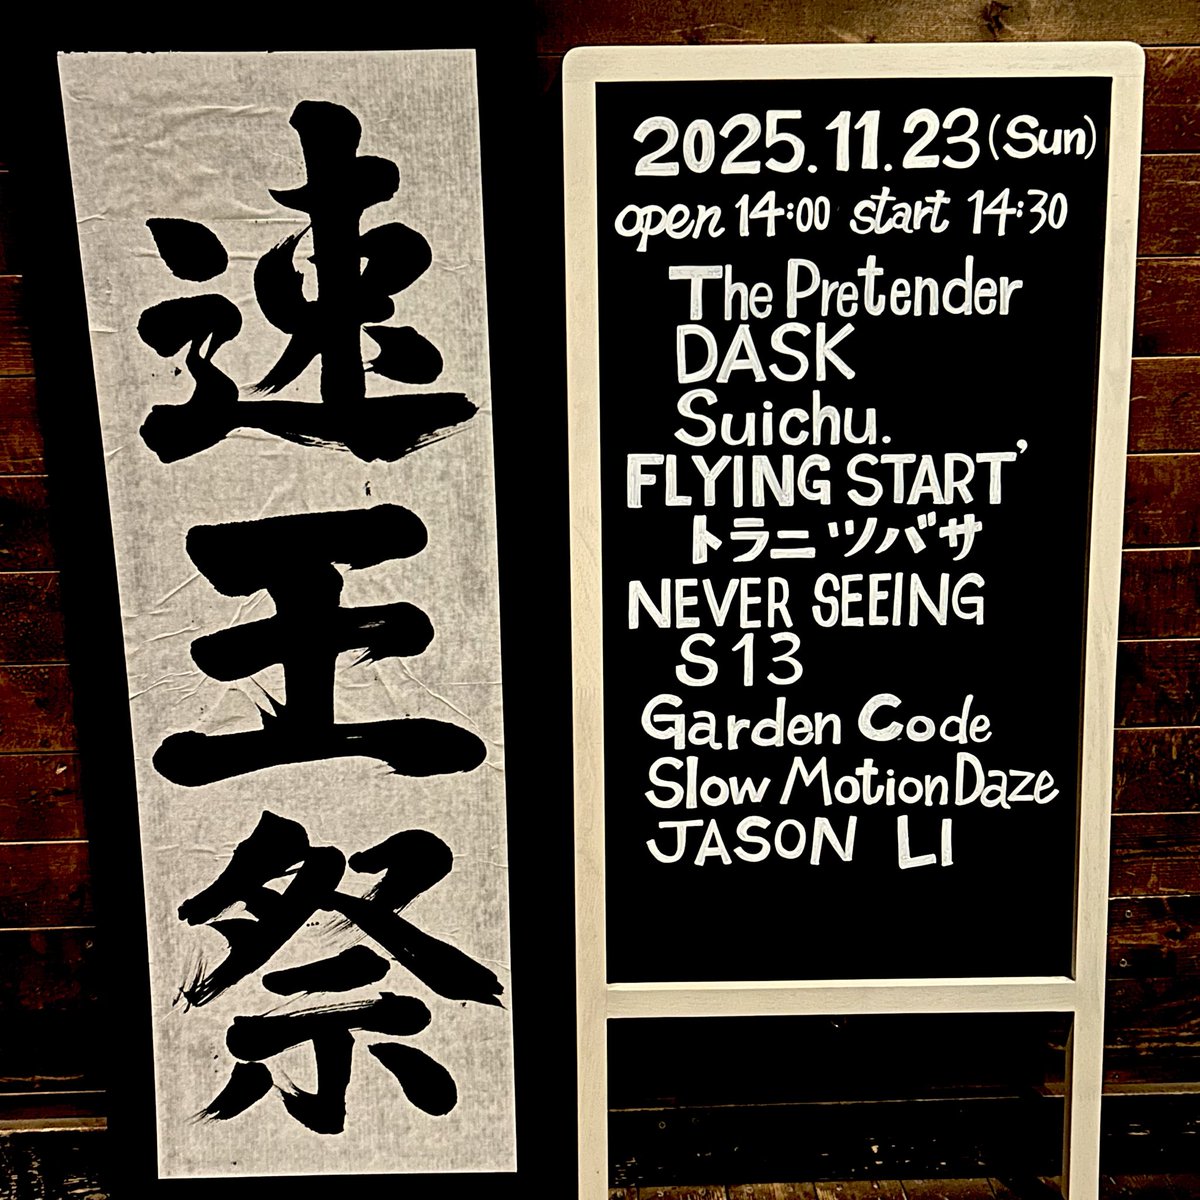 速王祭
2025.11.23(Sun)
open 14:00 start 14:30
The Pretender
DASK
Suichu.
FLYING START'
トラニツバサ
NEVER SEEING
S13
Garden Code
Slow Motion Daze
JASON LI